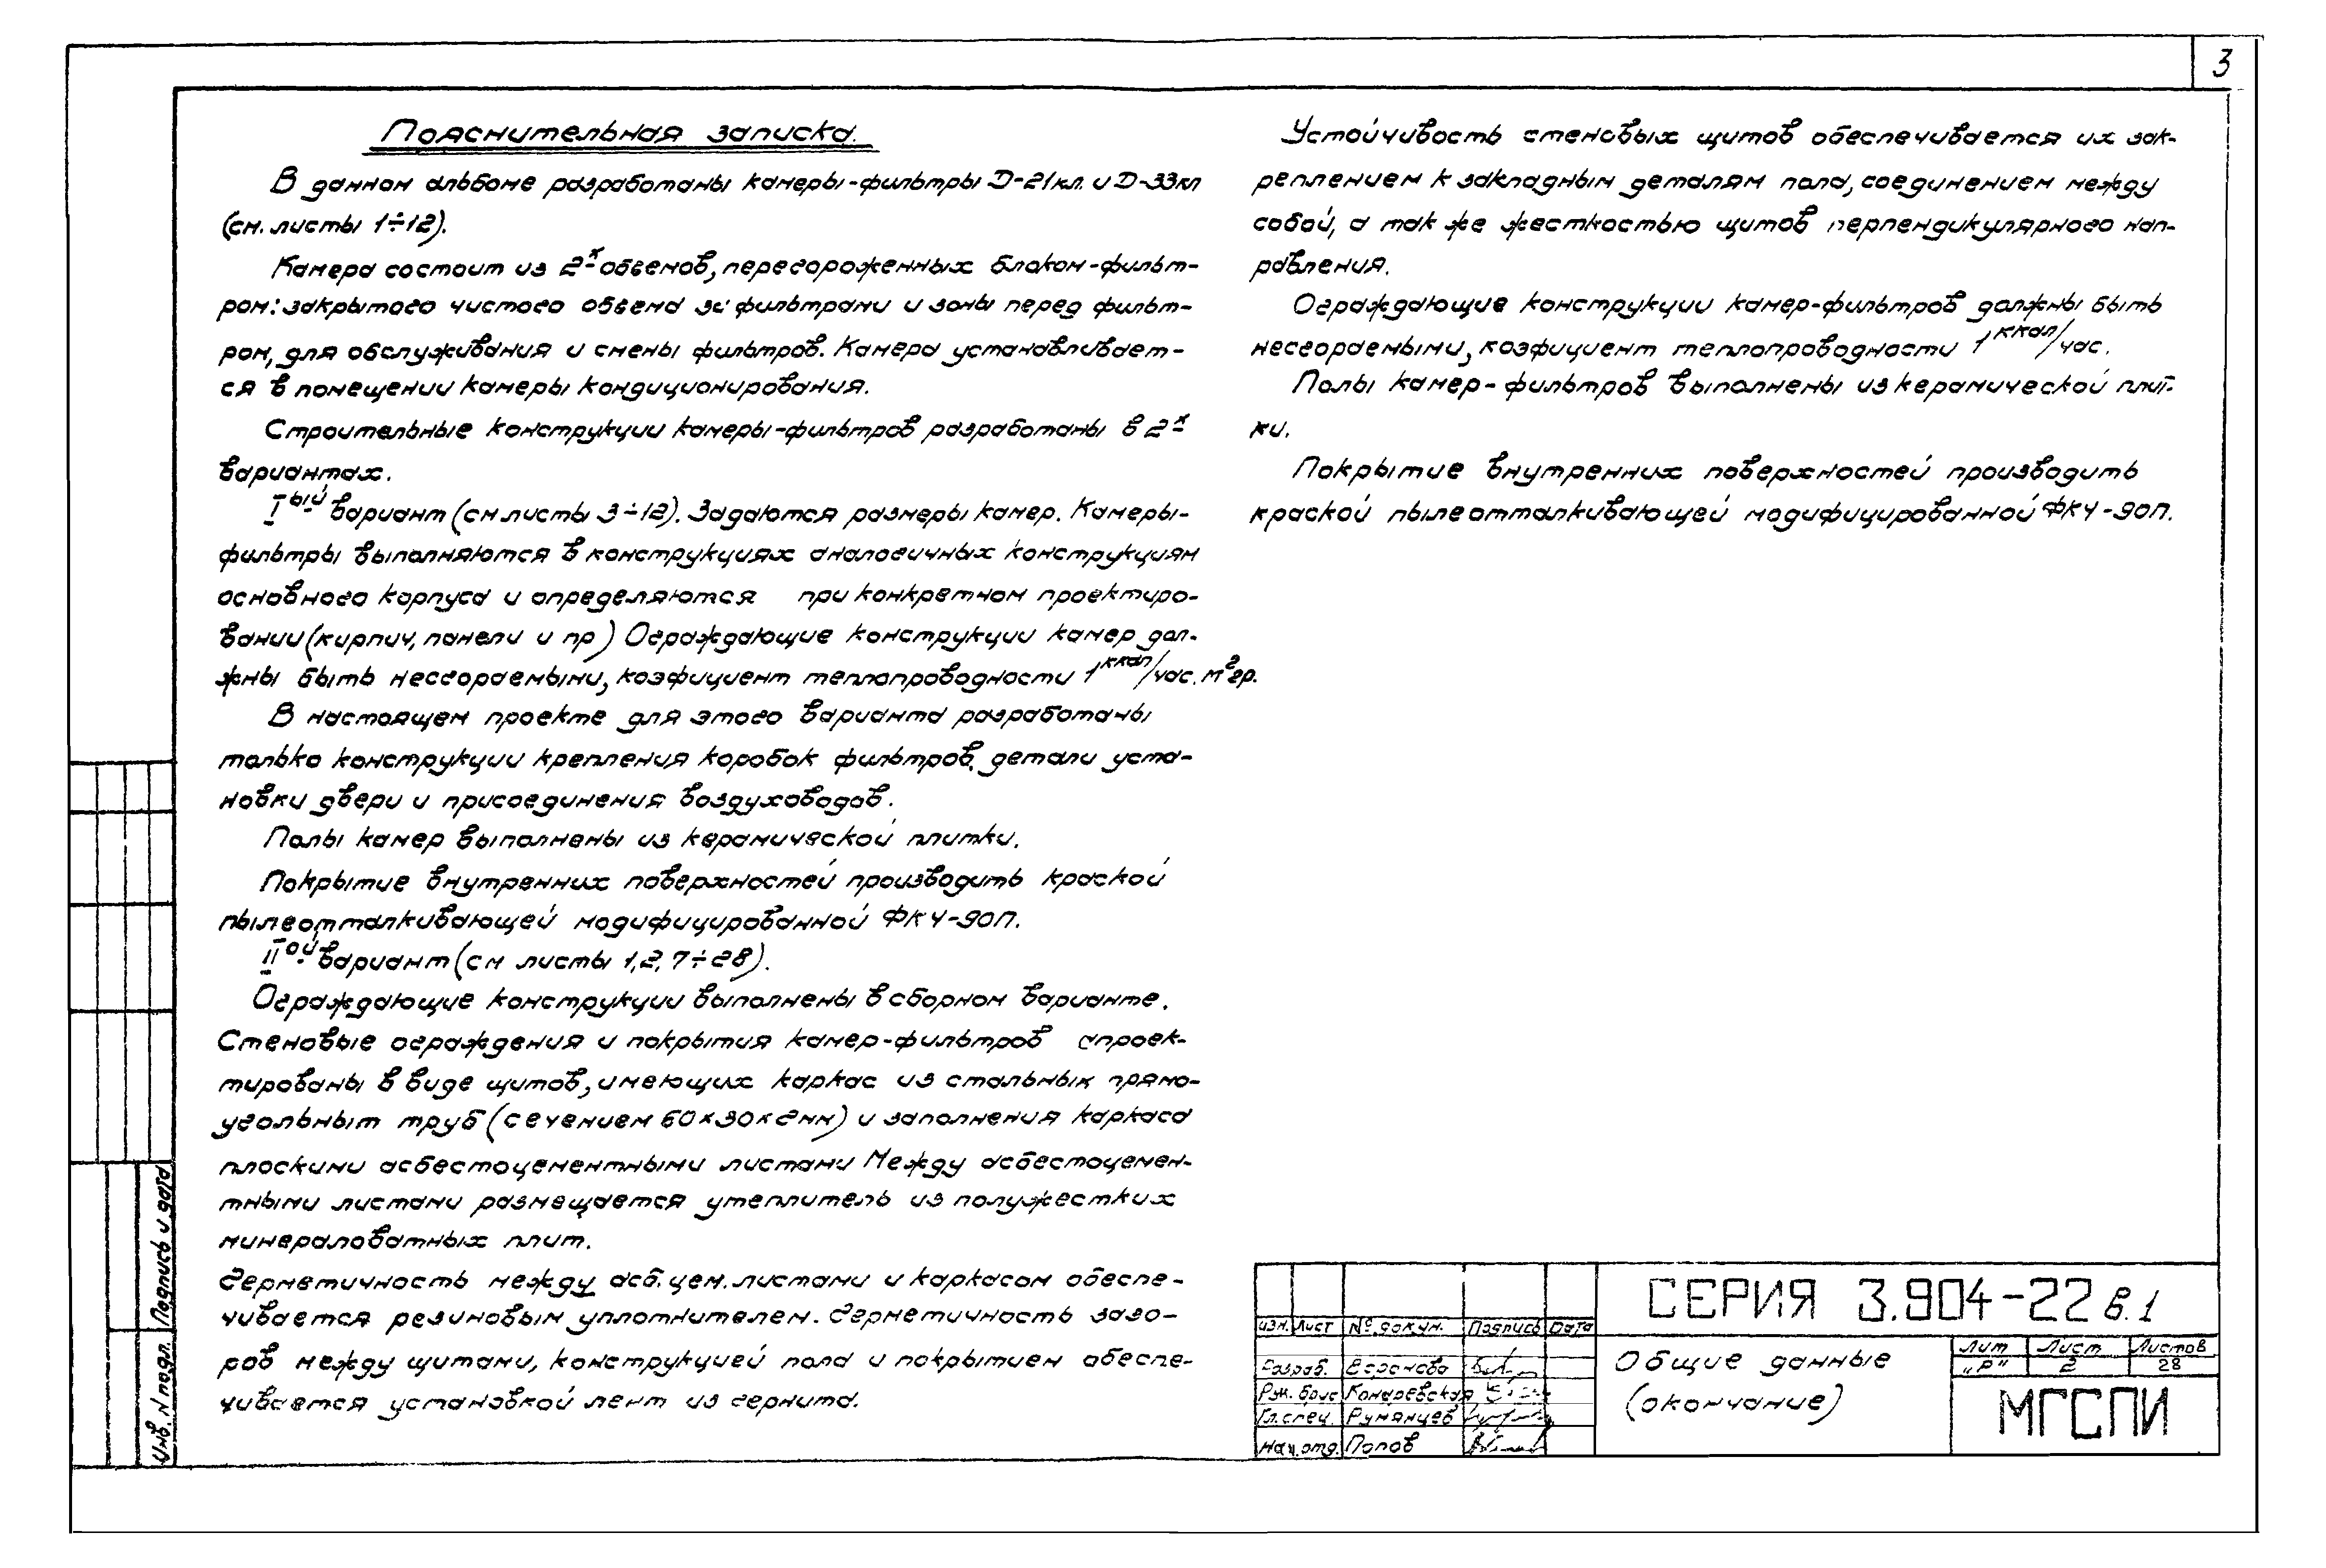 3
Пояснительная записка.
В данном альбоме разработаны камеры-фильтры Д-21кл. и Д-33кл
(см. листы 1÷12).
Камера состоит из 2х объемов, перегороженных блоком-фильт-
ром: закрытого чистого объема за фильтрами и зоны перед фильт-
ром, для обслуживания и смены фильтров. Камера устанавливает-
ся в помещении камеры кондиционирования.
Строительные конструкции камеры-фильтров разработаны в 2х
вариантах.
Iый вариант (см листы 3÷12). Задаются размеры камер. Камеры-
фильтры выполняются в конструкциях аналогичных конструкциям
основного корпуса и определяются при конкретном проектиро-
вании (кирпич, панели и пр) Ограждающие конструкции камер дол-
жны быть несгораемыми, коэфициент теплопроводности 1 ккал/час. м² гр.
В настоящем проекте для этого варианта разработаны
только конструкции крепления коробок фильтров, детали уста-
новки двери и присоединения воздуховодов.
Полы камер выполнены из керамической плитки.
Покрытие внутренних поверхностей производить краской
пылеотталкивающей модифицированной ФКЧ-90П.
IIой вариант (см листы 1, 2, 7÷28).
Ограждающие конструкции выполнены в сборном варианте.
Стеновые ограждения и покрытия камер-фильтров спроек-
тированы в виде щитов, имеющих каркас из стальных прямо-
угольныт труб (сечением 60×30×2мм) и заполнения каркаса
плоскими асбестоцементными листами Между асбестоцемен-
тными листами размещается утеплитель из полужестких
минераловатных плит.
Герметичность между асб. цем. листами и каркасом обеспе-
чивается резиновым уплотнителем. Герметичность зазо-
ров между щитами, конструкцией пола и покрытием обеспе-
чивается установкой лент из гернита.
Устойчивость стеновых щитов обеспечивается их зак-
реплением к закладным деталям пола, соединением между
собой, а так же жесткостью щитов перпендикулярного нап-
равления.
Ограждающие конструкции камер-фильтров должны быть
несгораемыми, коэфициент теплопроводности 1 ккал/час.
Полы камер-фильтров выполнены из керамической плит-
ки.
Покрытие внутренних поверхностей производить
краской пылеотталкивающей модифицированной ФКЧ-90П.
СЕРИЯ 3.904-22 в.1
изм. Лист № докум. Подпись Дата
Разраб.
Рук. бриг Комаревская
Гл. спец. Румянцев
Нач. отд. Попов
Общие данные
(окончание)
Лит Лист Листов
„Р" 2 28
МГСПИ
Подпись и дата
Инв. N подл.